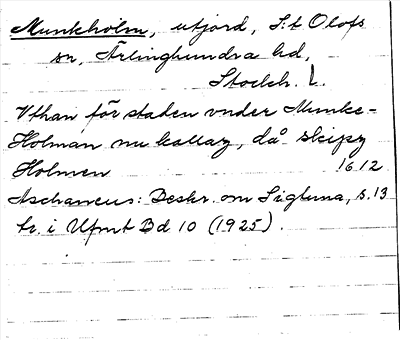 Munkholm, utjord, S:t Olofs
sn, Ärlinghundra hd,
Stockh. l.
Vthan för staden vnder Munke-
Holman nu kallaz, då skipz
Holmen 1612
Aschaneus: Beskr. om Sigtuna, s. 13
tr. i Ufmt Bd 10 (1925).